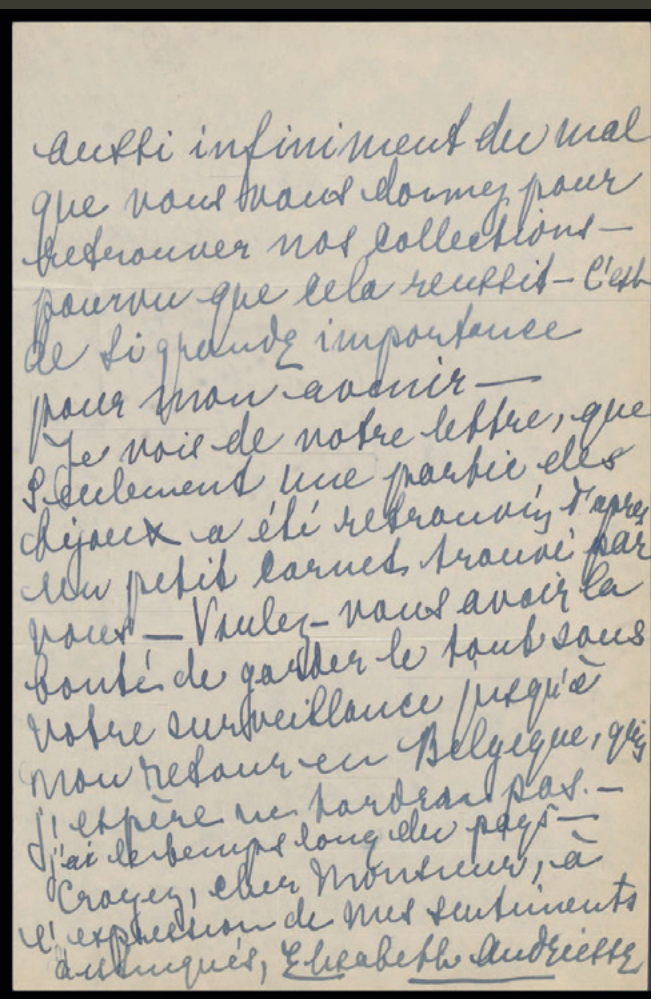 aussi infiniment du mal
que vous vous donnez pour
retrouver nos collections —
pourvu que cela reussit — C'est
de si grande importance
pour mon avenir —
Je vois de votre lettre, que
seulement une partie des
bijoux a été retrouvée, d'après
un petit carnet trouvé par
vous — Voulez-vous avoir la
bonté de garder le tout sous
votre surveillance jusqu'à
mon retour en Belgique, qui
j'espère ne tardera pas. —
j'ai le temps long du pays —
Croyez, cher Monsieur, à
l'expression de mes sentiments
distingués, Elisabeth Andriesse